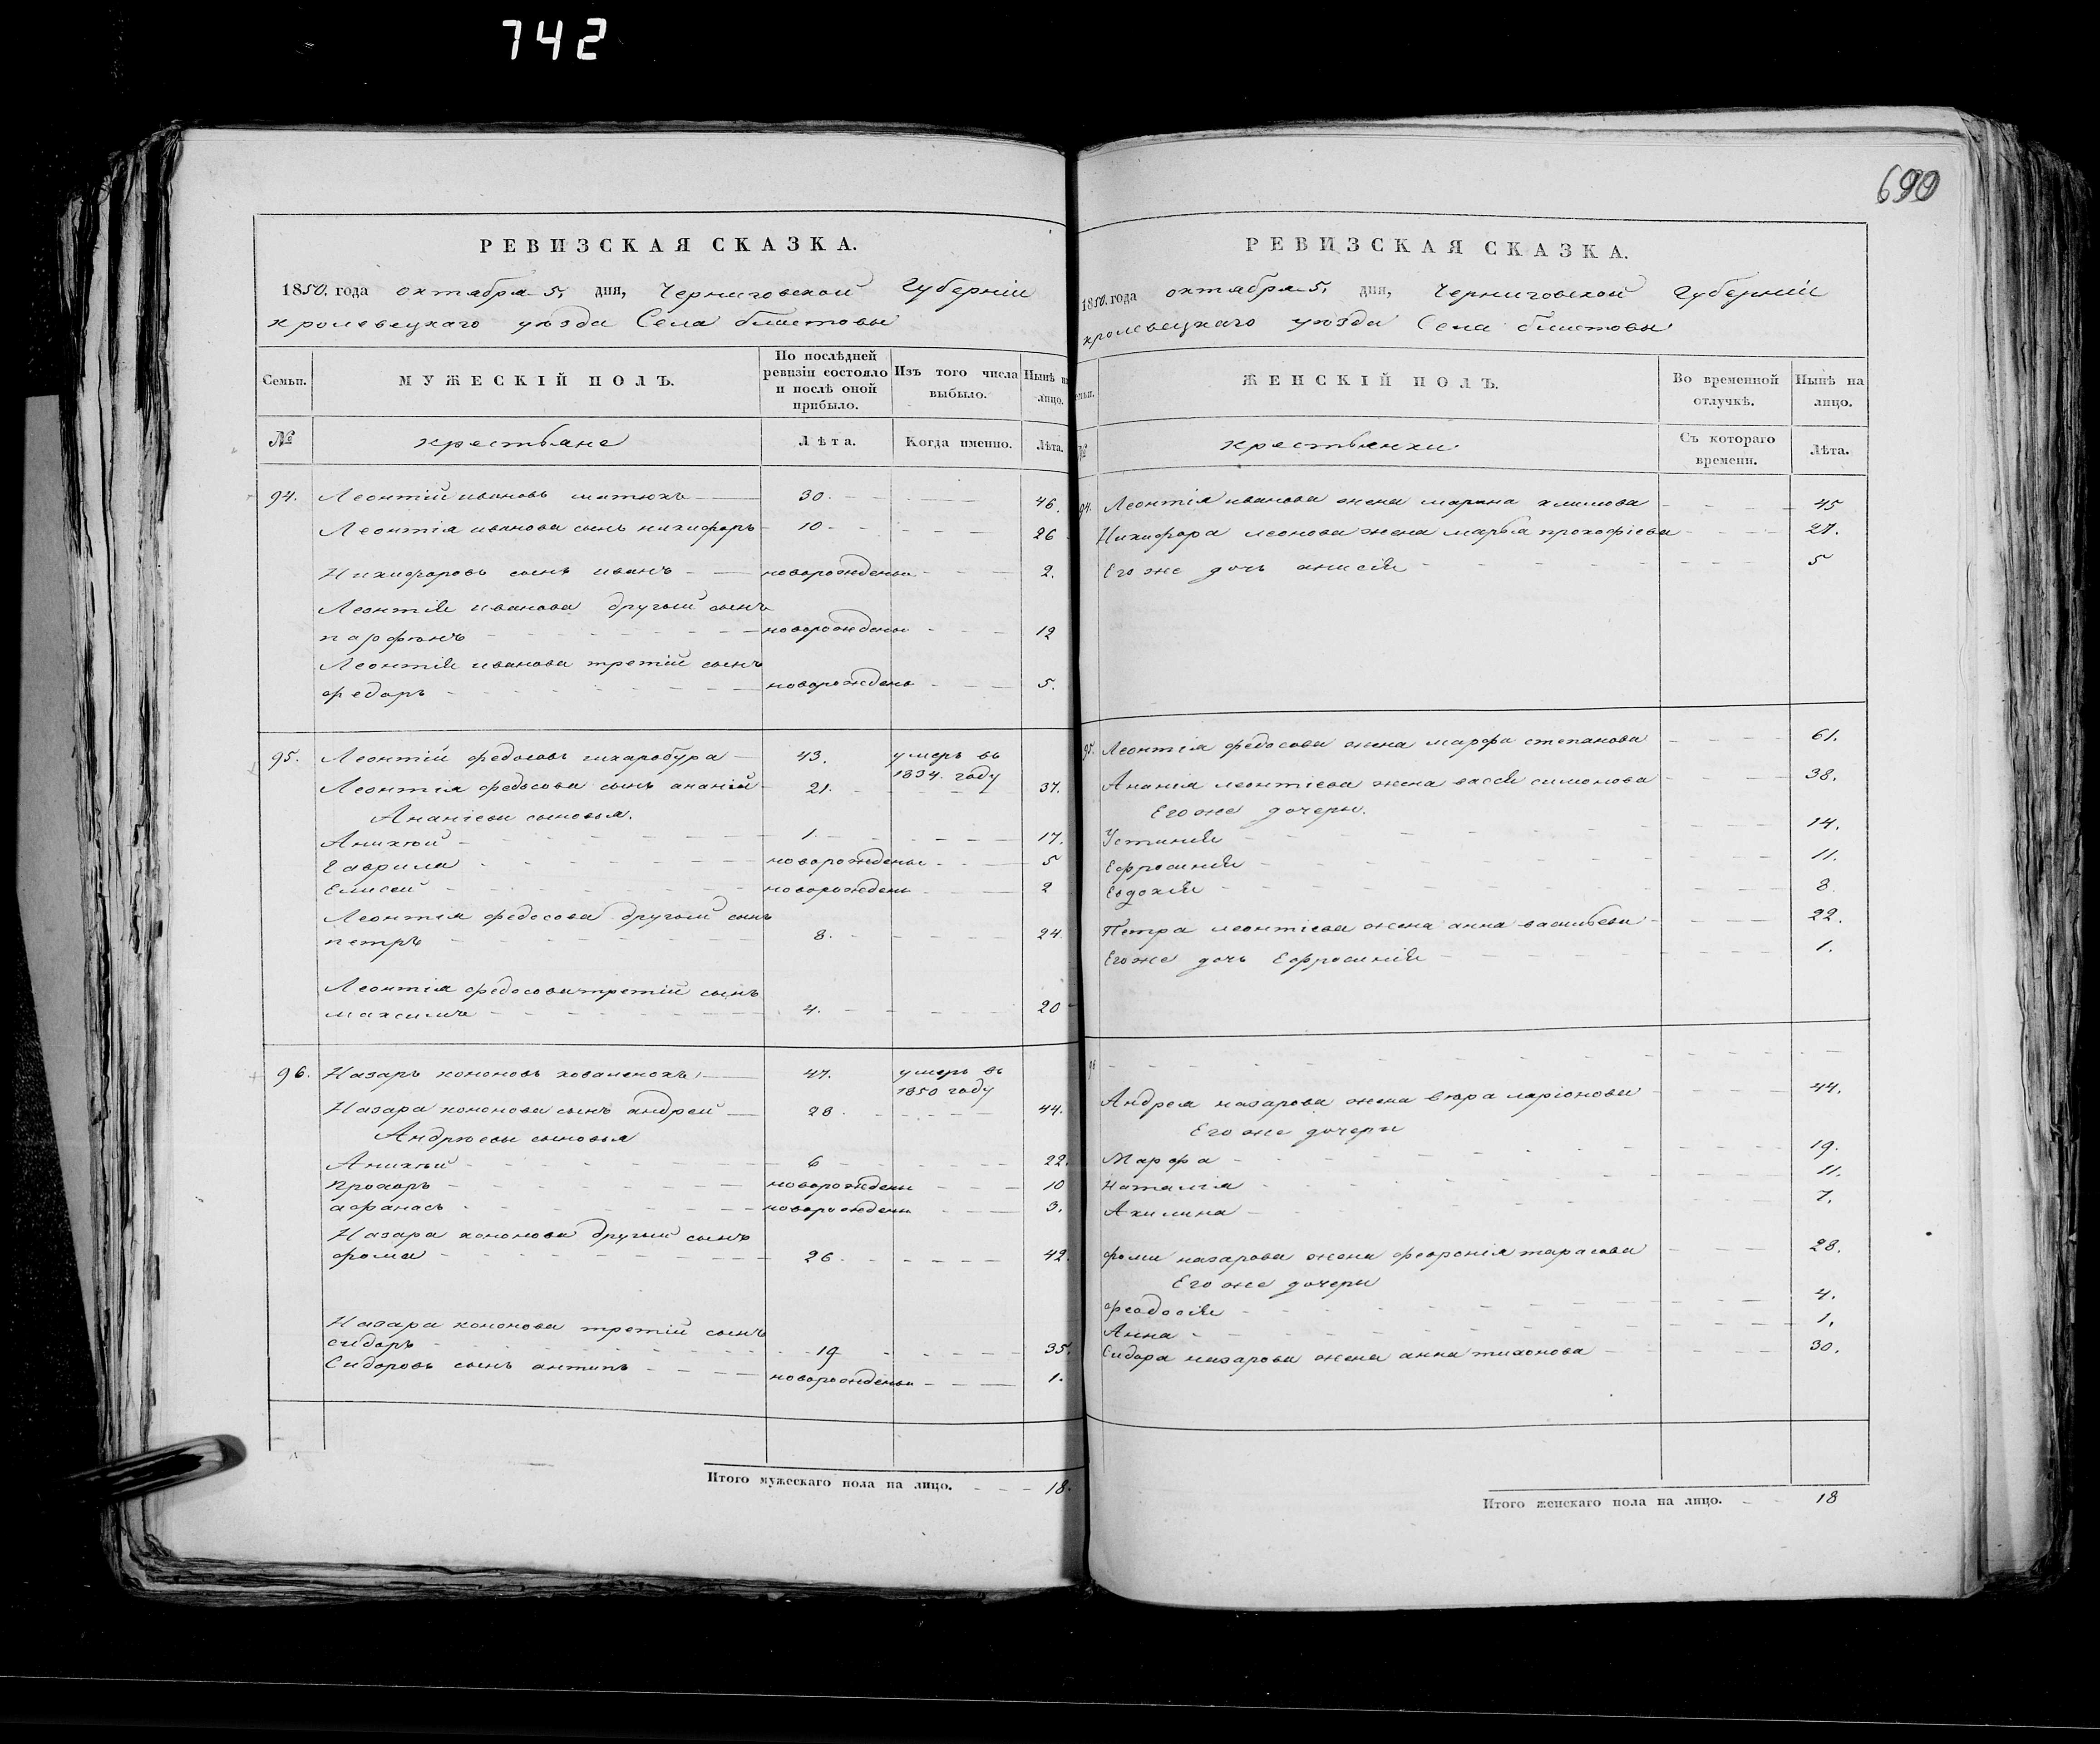 742
690
РЕВИЗСКАЯ СКАЗКА.
1850. года октября 5. дня, Черниговской Губерніи
кролевецкаго уѣзда Села блистовы
Семьи.
МУЖЕСКІЙ ПОЛЪ.
По послѣдней ревизіи состояло и послѣ оной прибыло.
Изъ того числа выбыло.
Нынѣ на лицо.
№
крестьяне
Лѣта.
Когда именно.
Лѣта.
94. Леонтій ивановъ матюхъ 30. 46.
Леонтія иванова сынъ никифоръ 10 26
Никифоровъ сынъ иванъ новорожденъ 2.
Леонтія иванова другой сынъ
парфенъ новорожденъ 12
Леонтія иванова третій сынъ
федоръ новорожденъ 5.
95. Леонтій федосовъ 43. умеръ въ 1834. году
Леонтія федосова сынъ ананій 21. 37.
Ананіевы сыновья.
Аникѣй 1. 17.
Гаврила новорожденъ 5
Елисей новорожденъ 2
Леонтія федосова другой сынъ
петръ 8. 24
Леонтія федосова третій сынъ
максимъ 4. 20
96. Назаръ кононовъ коваленокъ 47. умеръ въ 1850 году
Назара кононова сынъ андрей 28. 44.
Андрѣевы сыновья
Аникѣй 6 22.
прохоръ новорожденъ 10
афанасъ новорожденъ 3.
Назара кононова другой сынъ
фома 26. 42.
Назара кононова третій сынъ
сидоръ 19 35.
Сидоровъ сынъ антипъ новорожденъ 1.
Итого мужескаго пола на лицо. 18.
РЕВИЗСКАЯ СКАЗКА.
1850. года октября 5. дня, Черниговской Губерніи
кролевецкаго уѣзда Села блистовы
Семьи.
ЖЕНСКІЙ ПОЛЪ.
Во временной отлучкѣ.
Нынѣ на лицо.
№
крестьянки.
Съ котораго времени.
Лѣта.
94. Леонтія иванова жена марина климова 45
Никифора леонова жена марья прокофіева 27.
Его же дочь анисія 5
95. Леонтія федосова жена марфа степанова 61.
Ананія леонтіева жена васса симонова 38.
Его же дочери.
Устинія 14.
Ефросинія 11.
Евдокія 8.
Петра леонтіева жена анна васильева 22.
Его же дочь Ефросинія 1.
96
Андрея назарова жена ларіонова 44.
Его же дочери
Марфа 19.
Наталія 11.
Акилина 7.
фомы назарова жена февронія тарасова 28.
Его же дочери
феодосія 4.
Анна 1.
Сидора назарова жена анна тихонова 30.
Итого женскаго пола на лицо. 18